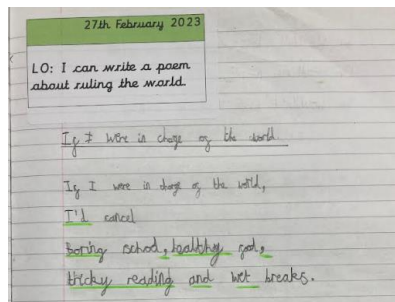 27th February 2023
LO: I can write a poem
about ruling the world.
If I were in charge of the world
If I were in charge of the world,
I'd cancel
boring school, healthy food,
tricky reading and wet breaks.